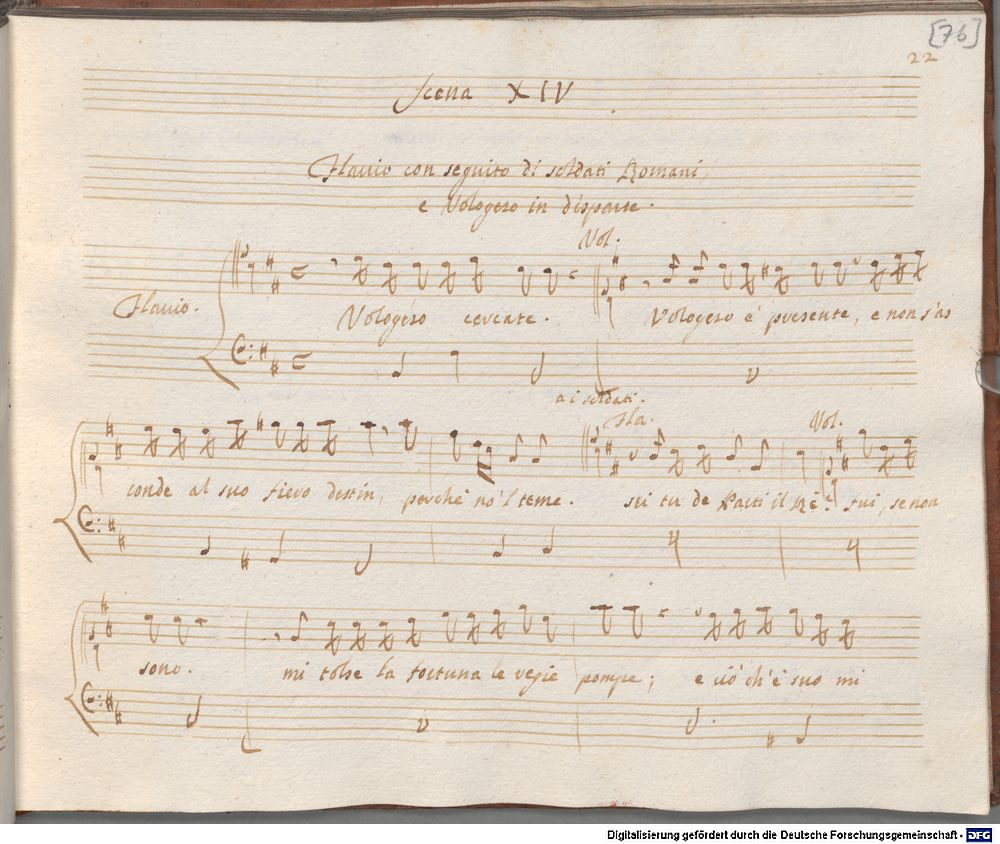 [76]
22
Scena XIV
Flavio con seguito di soldati Romani,
e Vologeso in disparte.
Vol.
Flavio.
Vologeso cercate. Vologeso è presente, e non s'as
a i soldati.
Fla. Vol.
conde al suo fiero destin, perche no'l teme. sei tu de Parti il Rè? fui, se non
sono. mi tolse la fortuna le regie pompe; e ciò ch'è suo mi
Digitalisierung gefördert durch die Deutsche Forschungsgemeinschaft - DFG